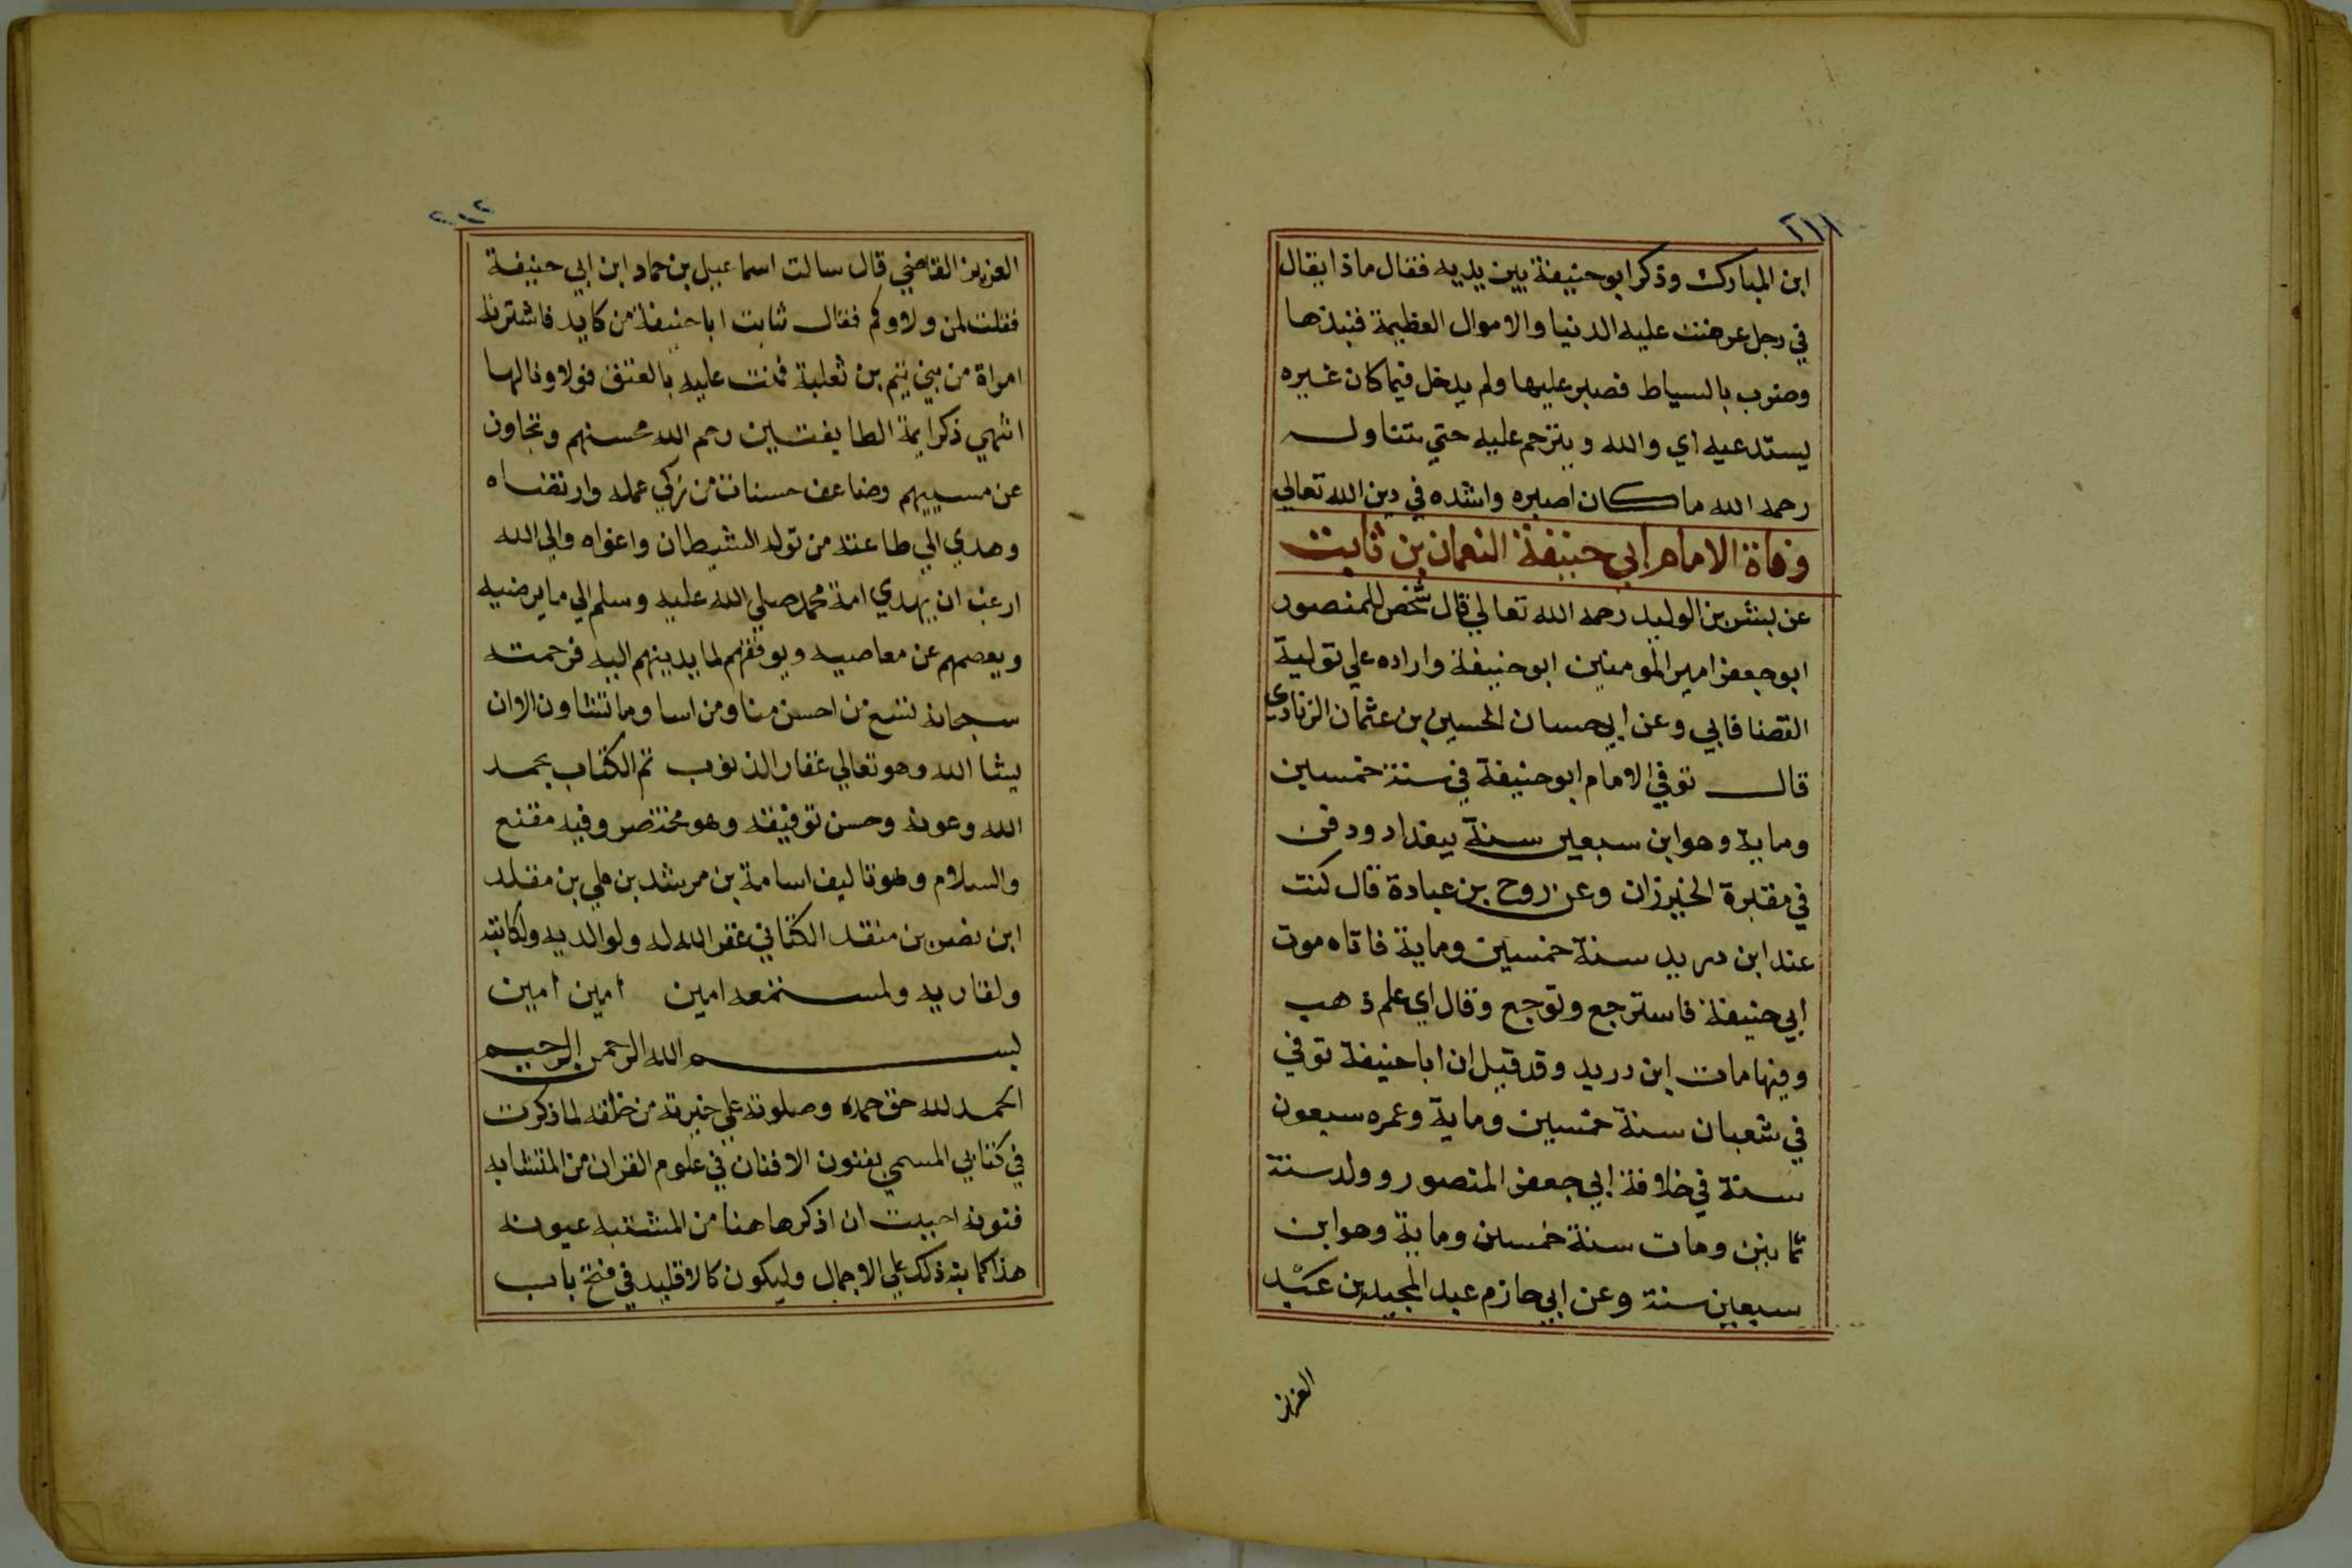 ٢١١
ابن المبارك وذكر ابو حنيفة بين يديه فقال ماذا يقال
في رجل عرضت عليه الدنيا والاموال العظيمة فنبذها
وضرب بالسياط فصبر عليها ولم يدخل فيما كان غيره
يستدعيه اي والله ويترحم عليه حتي يتناوله
رحمه الله ماكان اصبره واشده في دين الله تعالي
وفاة الامام ابي حنيفة النعمان بن ثابت
عن بشر بن الوليد رحمه الله تعالي قال شخص للمنصور
ابو جعفر امير المومنين ابو حنيفة واراده علي تولية
القضا فابي وعن ابي حسان الحسين بن عثمان الزنادي
قال توفي الامام ابو حنيفة في سنة خمسين
وماية وهو ابن سبعين سنة ببغداد ودفن
في مقبرة الخيزران وعن روح بن عبادة قال كنت
عند ابن دريد سنة خمسين وماية فاتاه موت
ابي حنيفة فاسترجع وتوجع وقال اي علم ذهب
وفيها مات ابن دريد وقد قيل ان ابا حنيفة توفي
في شعبان سنة خمسين وماية وعمره سبعون
سنة في خلافة ابي جعفر المنصور وولد سنة
ثمانين ومات سنة خمسين وماية وهو ابن
سبعين سنة وعن ابي حازم عبد المجيد بن عبد
العزيز
٢١٢
العزيز القاضي قال سالت اسماعيل بن حماد ابن ابي حنيفة
فقلت لمن ولاوكم فقال ثابت ابا حنيفة من كابد فاشترته
امراة من بني تيم بن ثعلبة فمنت عليه بالعتق فولاونا لها
انتهي ذكر ايمة الطايفتين رحم الله محسنهم وتجاون
عن مسييهم وضاعف حسنات من زكي عمله وارتضاه
وهدي الي طاعته من تولد الشيطان واغواه والي الله
ارغب ان يهدي امة محمد صلي الله عليه وسلم الي ما يرضيه
ويعصمهم عن معاصيه ويوفقهم لما يدينهم اليه فرحمته
سبحانه تسع من احسن منا ومن اسا وما تشاون الا ان
يشا الله وهو تعالي غفار الذنوب تم الكتاب بحمد
الله وعونه وحسن توفيقه وهو مختصر وفيه مقنع
والسلام وهو تاليف اسامة بن مرشد بن علي بن مقلد
ابن نصر بن منقد الكناني غفر الله له ولوالديه ولكاتبه
ولقاريه ولمستمعه امين امين امين
بسم الله الرحمن الرحيم
الحمد لله حق حمده وصلوته علي خيرته من خلقه لما ذكرت
في كتابي المسمي بفنون الافنان في علوم القران من المتشابه
فنونه احببت ان اذكر هاهنا من المشتبه عيونه
هذا كما بته ذلك علي الاجمال وليكون كالاقليد في فتح باب